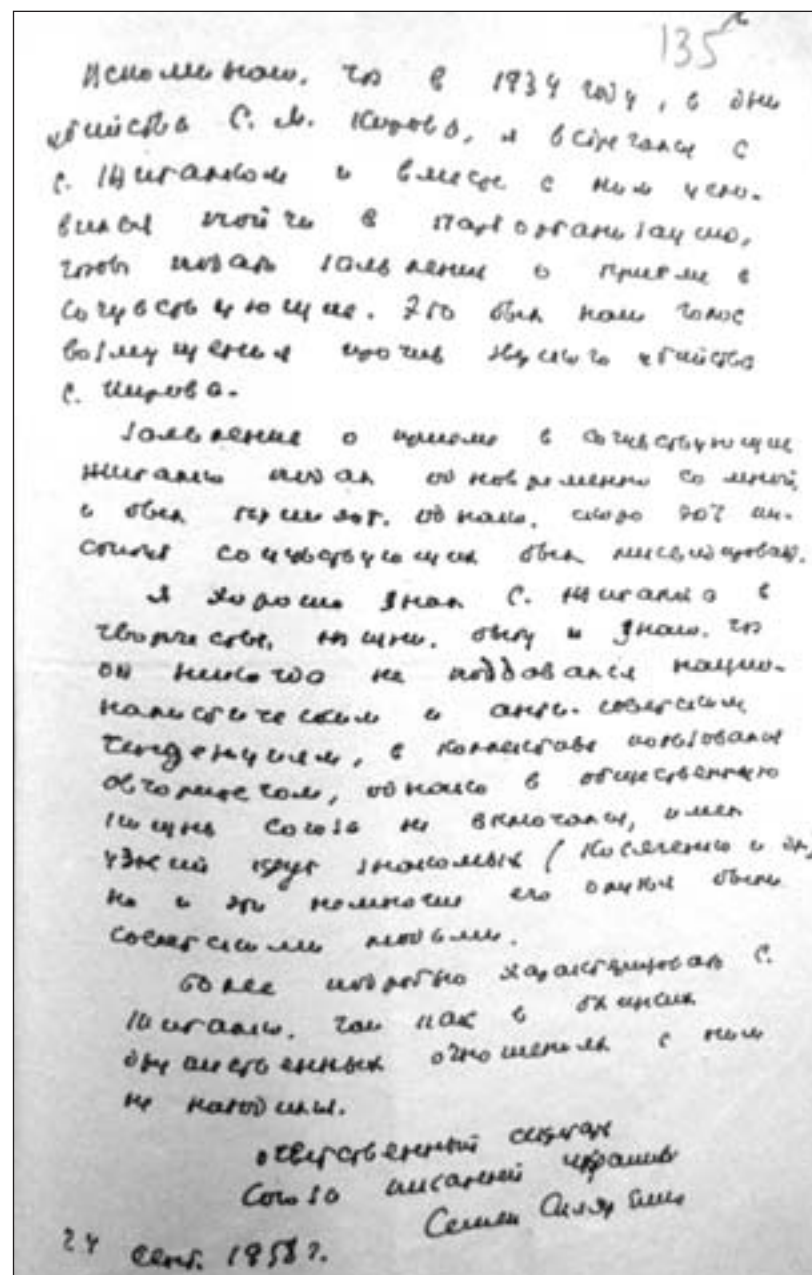 135
Вспоминаю, что в 1934 году, в дни
убийства С. М. Кирова, я встречался с
С. Жигалком и вместе с ним усло-
вился пойти в парторганизацию,
чтобы подать заявление о приеме в
сочувствующие. Это был наш голос
возмущения против убийства
С. Кирова.
Заявление о приеме в сочувствующие
Жигалко подал одновременно со мной,
и был принят. Однако, скоро этот ин-
ститут сочувствующих был ликвидирован.
Я хорошо знал С. Жигалко в
творчестве, жизни, быту и знаю, что
он никогда не поддавался нацио-
налистическим и анти-советским
тенденциям, в коллективе пользовался
авторитетом, однако в общественную
жизнь Союза не включался, имел
узкий круг знакомых (Косяченко и др.)
но и эти немногие его друзья были
советскими людьми.
Более подробно характеризовать С.
Жигалко, так как в близких
дружественных отношениях с ним
не находился.
Ответственный секретарь
Союза писателей Украины
Семен Скляренко
24 сент. 1958 г.